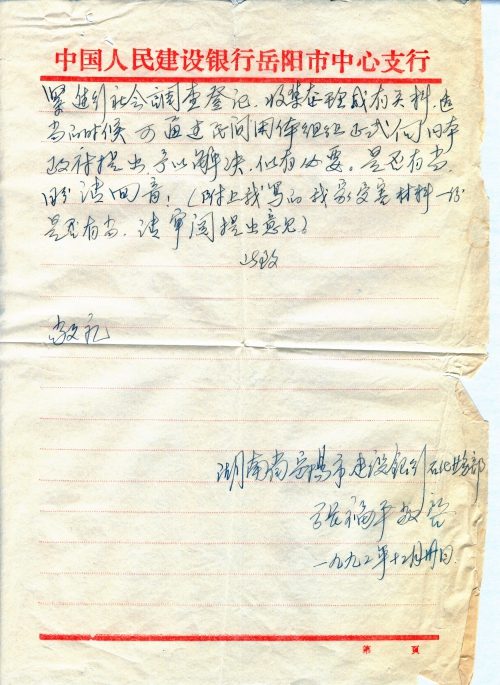 中国人民建设银行岳阳市中心支行
进行社会调查登记、收集整理成有关料，适
当的时候可通过民间团体组织正式向日本
政府提出，予以解决，似有必要。是否有当，
盼请回音！（附上我写的我家受害材料一份
是否有当，请审阅提出意见）
此致
敬礼
湖南省岳阳市建设银行石化业务部
张福平敬启
一九九二年十二月廿日
第 页